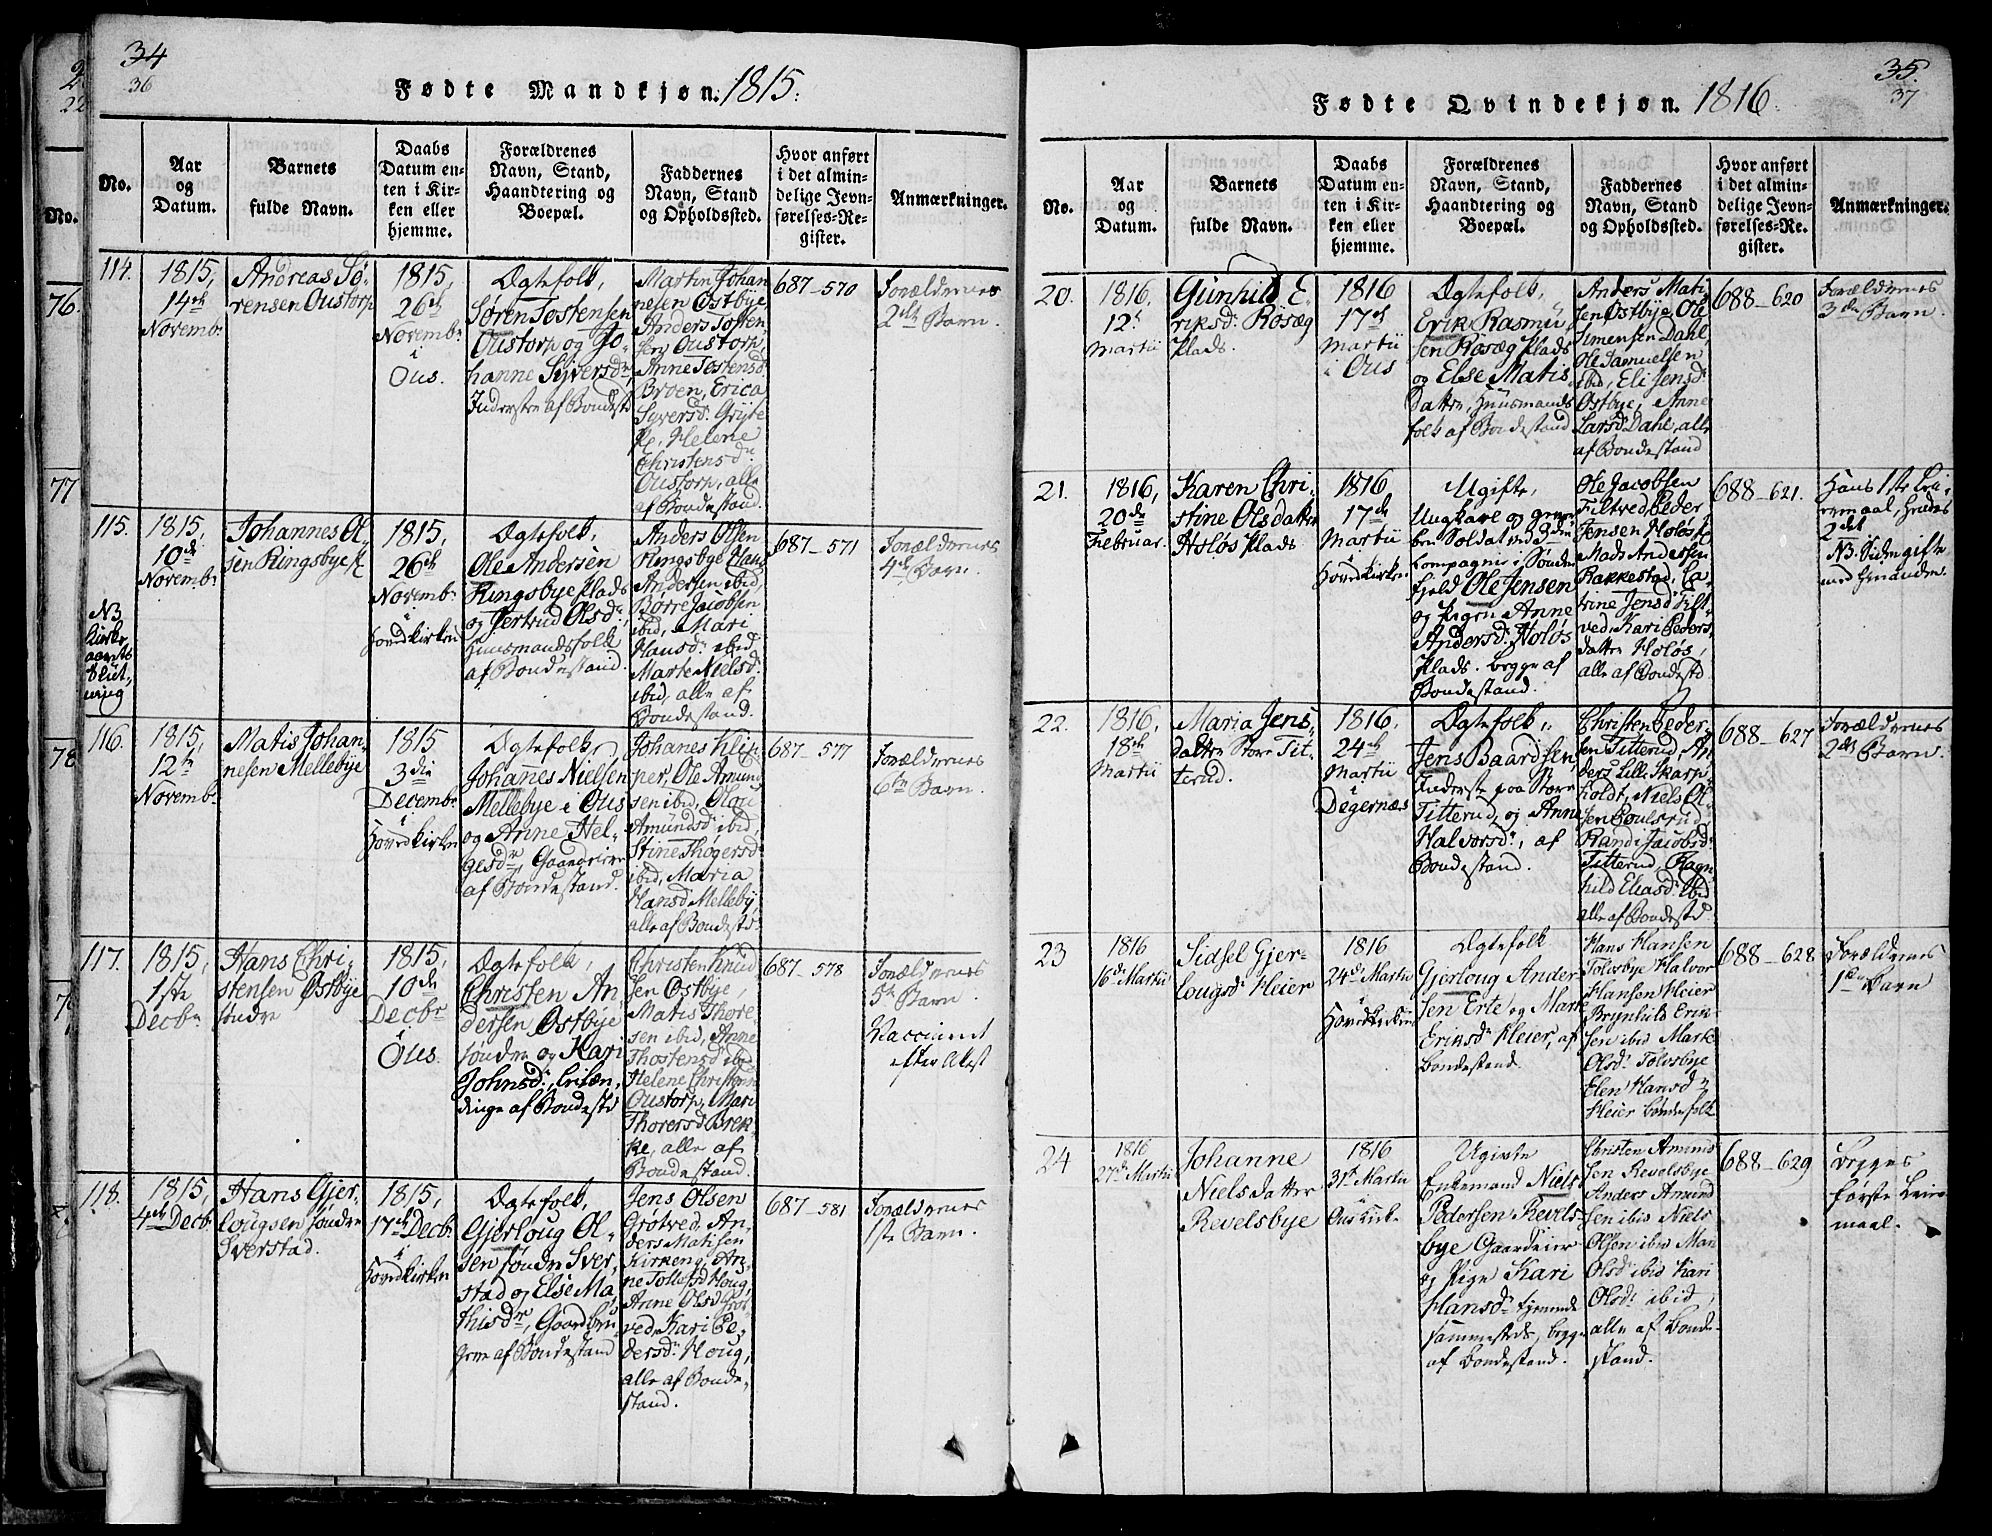 34
36
Fødte Mandkjøn. 1815.
No.
Aar
og
Datum.
Barnets
fulde Navn.
Daabs
Datum en-
ten i Kir-
ken eller
hjemme.
Forældrenes
Navn, Stand,
Haandtering og
Boepæl.
Faddernes
Navn, Stand
og Opholdssted.
Hvor anført
i det almin-
delige Jevn-
førelses-Re-
gister.
Anmærkninger.
114.
1815,
14de
Novembr
Andreas Sø-
rensen Oustorp
1815,
26de
Novembr
i
Ous.
Ægtefolk,
Søren Tostensen
Oustorp og Jo-
hanne Syversdr,
Inderster af Bondestd
Martin Johan
nesen Østbye,
Anders Tosten-
sen Oustorp,
Anne Tostensdr
Broen, Erica
Syversdr
Helene
Christensdr
Oustorp, alle
af Bondestand.
687-570
Forældrenes
2det Barn.
115.
NB
Kirke
aarets
Slut-
ning
1815,
10de
Novembr
Johannes Ol-
sen Ringsbye
1815,
26de
Novembr
i
Hovedkirken
Ægtefolk,
Ole Andersen
Ringsbye Plads
og Gjertrud Olsdr,
Huusmandsfolk
af Bondestand.
Anders Olsen
Ringsbye, Hans
Andersen ibid,
Børre Jacobsen
ibid, Mari
Hansdr ibid
Marte Nielsdr
ibid, alle af
Bondestand.
687-571
Forældrenes
4de Barn.
116.
1815,
12te
Novembr
Matis Johan-
nesen Mellebye
1815
3die
Decembr
i
Hovedkirken
Ægtefolk,
Johannes Nielsen
Mellebye i Ous
og Anne Hel-
gesdr, Gaardeiere
af Bondestand.
Johanes Klip
per, Ole Amund
sen ibid, Olou
Amundsdr ibid,
Stine Thogersdr
ibid, Maria
Hansdr Melleby,
alle af Bondestd
687-577
Forældrenes
6te Barn.
117.
1815,
1ste
Decbr
Hans Chri-
stensen Østbye
søndre
1815,
10de
Decbr
i
Ous.
Ægtefolk,
Christen An-
dersen Østbye
søndre og Kari
Johnsdr,
af Bondestd
Christen Knud
sen Østbye,
Matis Thore
sen ibid, Anne
Thostensdr ibid
Helene Christensdr
Oustorp, Mari
Thorersdr Brek-
ke, alle af
Bondestand.
687-578
Forældrenes
5te Barn.
Vaccineret
efter Attest
118.
1815,
4de Decbr
Hans Gjer-
lougsen søndre
Sverstad.
1815,
17de Decbr
i
Hovedkirken
Ægtefolk,
Gjerloug Ol-
sen søndre Sver-
stad og Else Ma-
thisdr, Gaardbru
gere af Bondestand
Jens Olsen
Grøtved, An-
ders Matisen
Kirkeng, An-
ne Tollefsdr Houg,
Anne Olsdr Grøt
ved, Kari Pe-
dersdr Houg,
alle af Bonde-
stand.
687-581
Forældrenes
1ste Barn.
35.
37
Fødte Qvindekjøn. 1816
No.
Aar
og
Datum.
Barnets
fulde Navn.
Daabs
Datum en-
ten i Kir-
ken eller
hjemme.
Forældrenes
Navn, Stand,
Haandtering og
Boepæl.
Faddernes
Navn, Stand
og Opholdssted.
Hvor anført
i det almin-
delige Jevn-
førelses-Re-
gister.
Anmærkninger.
20.
1816,
12te
Martii
Gunhild E-
riksdr Rosæg
Plads.
1816
17de
Martii
i Ous
Ægtefolk,
Erik Rasmu-
sen Rosæg Plads
og Else Matis
Datter, Huusmands
folk af Bondestand
Anders Mati
sen Østbye, Ole
Simensen Dahl,
Ole Samuelsen
ibid, Eli Jensdr
Østbye, Anne
Larsdr Dahl, alle
af Bondestand
688-620
Forældrenes
3die Barn.
21.
1816,
20de
Februar.
Karen Chri-
stine Olsdatter
Holøs Plads
1816
17de
Martii
i
Hovedkirken
Ugifte,
Ungkarl og
Soldat ved
Compagnie i Sønden
fjeld Ole Jensen
og Pigen Anne
Andersdr Holøs
Plads. begge af
Bondestand.
Ole Jacobsen
Filtved Peder
Jensen Holøs
Mads Andersen
Rakkestad, Ca-
trine Jensdr Filt-
ved, Kari Peders-
datter Holøs,
alle af Bondestd
688-621.
Hans 1ste Lei-
ermaal, Hendes
2det
NB. Siden gifte
med hinanden.
22.
1816,
18de
Martii
Maria Jens-
datter Store Tit-
terud.
1816,
24de
Martii
i
Degernæs
Ægtefolk,
Jens Baardsen,
Inderste paa Store
Titterud, og Anne
Halvorsdr, af
Bondestand.
Christen Peder-
sen Titterud, An-
ders Lille Skarp-
holdt, Niels Ol-
sen Poulsrud,
Randi Jacobsdr
Titterud, Ragn-
hild Eliasdr ibid
alle af Bondestd
688-627
Forældrenes
2det Barn.
23
1816
16de Martii
Sidsel Gjer-
lougsdr Heier
1816
24de Martii
i
Hovedkirken
Ægtefolk
Gjerloug Ander
sen Erte og Marte
Eriksdr Heier, af
Bondestand.
Hans Hansen
Tolvsbye Halvor
Hansen Heier
Brynhild Erik-
sen ibid Marte
Olsdr Tolvsbye
Elen Hansdr
Heier Bønderfolk
688-628
Forældrenes
1te Barn
24
1816
27de Martii
Johanne
Nielsdatter
Revelsbye
1816
31te Martii
i
Ous Kirke
Ugivte
Enkemand Niels
Pedersen Revels-
bye Gaardeier
og Pige Kari
Hansdr tjenende
sammesteds, begge
af Bondestand.
Christen Amund
sen Revelsbye
Anders Amund
sen ibid Niels
Olsen ibid Mari
Olsdr ibid Kari
Olsdr ibid,
alle af Bonde-
stand.
688-629
Begges
første Leier
maal.
No.
76
77
78